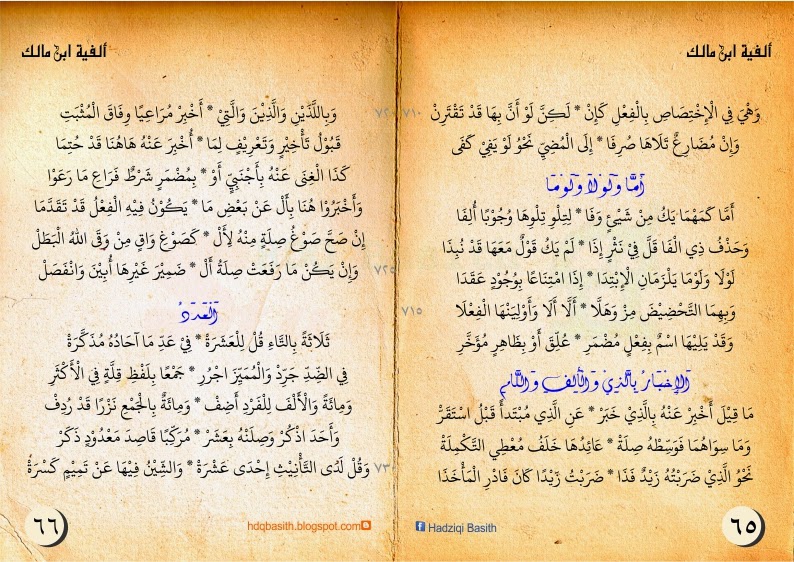 ألفية ابن مالك
وَهْيَ فِي الْإِخْتِصَاصِ بِالْفِعْلِ كَإِنْ * لَكِنَّ لَوْ أَنَّ بِهَا قَدْ تَقْتَرِنْ ٧١٠
وَإِنْ مُضَارِعٌ تَلَاهَا صُرِفَا * إِلَى الْمُضِيِّ نَحْوُ لَوْ يَفِيْ كَفَى
أَمَّا وَلَوْلَا وَلَوْمَا
أَمَّا كَمَهْمَا يَكُ مِنْ شَيْئٍ وَفَا * لِتِلْوِ تِلْوِهَا وُجُوْبًا أُلِفَا
وَحَذْفُ ذِي الْفَا قَلَّ فِيْ نَثْرٍ إِذَا * لَمْ يَكُ قَوْلٌ مَعَهَا قَدْ نُبِذَا
لَوْلَا وَلَوْمَا يَلْزَمَانِ الْإِبْتِدَا * إِذَا امْتِنَاعًا بِوُجُودٍ عَقَدَا
وَبِهِمَا التَّحْضِيْضَ مِزْ وَهَلَّا * أَلَّا أَلَا وَأَوْلِيَنْهَا الْفِعْلَا ٧١٥
وَقَدْ يَلِيْهَا اسْمٌ بِفِعْلٍ مُضْمَرِ * عُلِّقَ أَوْ بِظَاهِرٍ مُؤَخَّرِ
الْإِخْبَارُ بِالَّذِيْ وَالْأَلِفِ وَاللَّامِ
مَا قِيْلَ أَخْبِرْ عَنْهُ بِالَّذِيْ خَبَرْ * عَنِ الَّذِيْ مُبْتَدَأً قَبْلُ اسْتَقَرّْ
وَمَا سِوَاهُمَا فَوَسِّطْهُ صِلَةْ * عَائِدُهَا خَلَفُ مُعْطِي التَّكْمِلَةْ
نَحْوُ الَّذِيْ ضَرَبْتُهُ زَيْدٌ فَذَا * ضَرَبْتُ زَيْدًا كَانَ فَادْرِ الْمَأْخَذَا
Hadziqi Basith
٦٥
ألفية ابن مالك
وَبِاللَّذَيْنِ وَالَّذِيْنَ وَالَّتِيْ * أَخْبِرْ مُرَاعِيًا وِفَاقَ الْمُثْبَتِ ٧٢٠
قَبُوْلُ تَأْخِيْرٍ وَتَعْرِيْفٍ لِمَا * أُخْبِرَ عَنْهُ هَاهُنَا قَدْ حُتِمَا
كَذَا الْغِنَى عَنْهُ بِأَجْنَبِيٍّ أَوْ * بِمُضْمَرٍ شَرْطٌ فَرَاعِ مَا رَعَوْا
وَأَخْبَرُوْا هُنَا بِأَلْ عَنْ بَعْضِ مَا * يَكُوْنُ فِيْهِ الْفِعْلُ قَدْ تَقَدَّمَا
إِنْ صَحَّ صَوْغُ صِلَةٍ مِنْهُ لِأَلْ * كَصَوْغِ وَاقٍ مِنْ وَقَى اللّٰهُ الْبَطَلْ
وَإِنْ يَكُنْ مَا رَفَعَتْ صِلَةُ أَلْ * ضَمِيْرَ غَيْرِهَا أُبِيْنَ وَانْفَصَلْ ٧٢٥
الْعَدَدُ
ثَلَاثَةً بِالتَّاءِ قُلْ لِلْعَشَرَةْ * فِيْ عَدِّ مَا آحَادُهُ مُذَكَّرَةْ
فِي الضِّدِّ جَرِّدْ وَالْمُمَيِّزَ اجْرُرِ * جَمْعًا بِلَفْظِ قِلَّةٍ فِي الْأَكْثَرِ
وَمِائَةً وَالْأَلْفَ لِلْفَرْدِ أَضِفْ * وَمِائَةٌ بِالْجَمْعِ نَزْرًا قَدْ رُدِفْ
وَأَحَدَ اذْكُرْ وَصِلَنْهُ بِعَشَرْ * مُرَكِّبًا قَاصِدَ مَعْدُوْدٍ ذَكَرْ
وَقُلْ لَدَى التَّأْنِيْثِ إِحْدَى عَشْرَةْ * وَالشِّيْنُ فِيْهَا عَنْ تَمِيْمٍ كَسْرَةْ ٧٣٠
hdqbasith.blogspot.com
٦٦